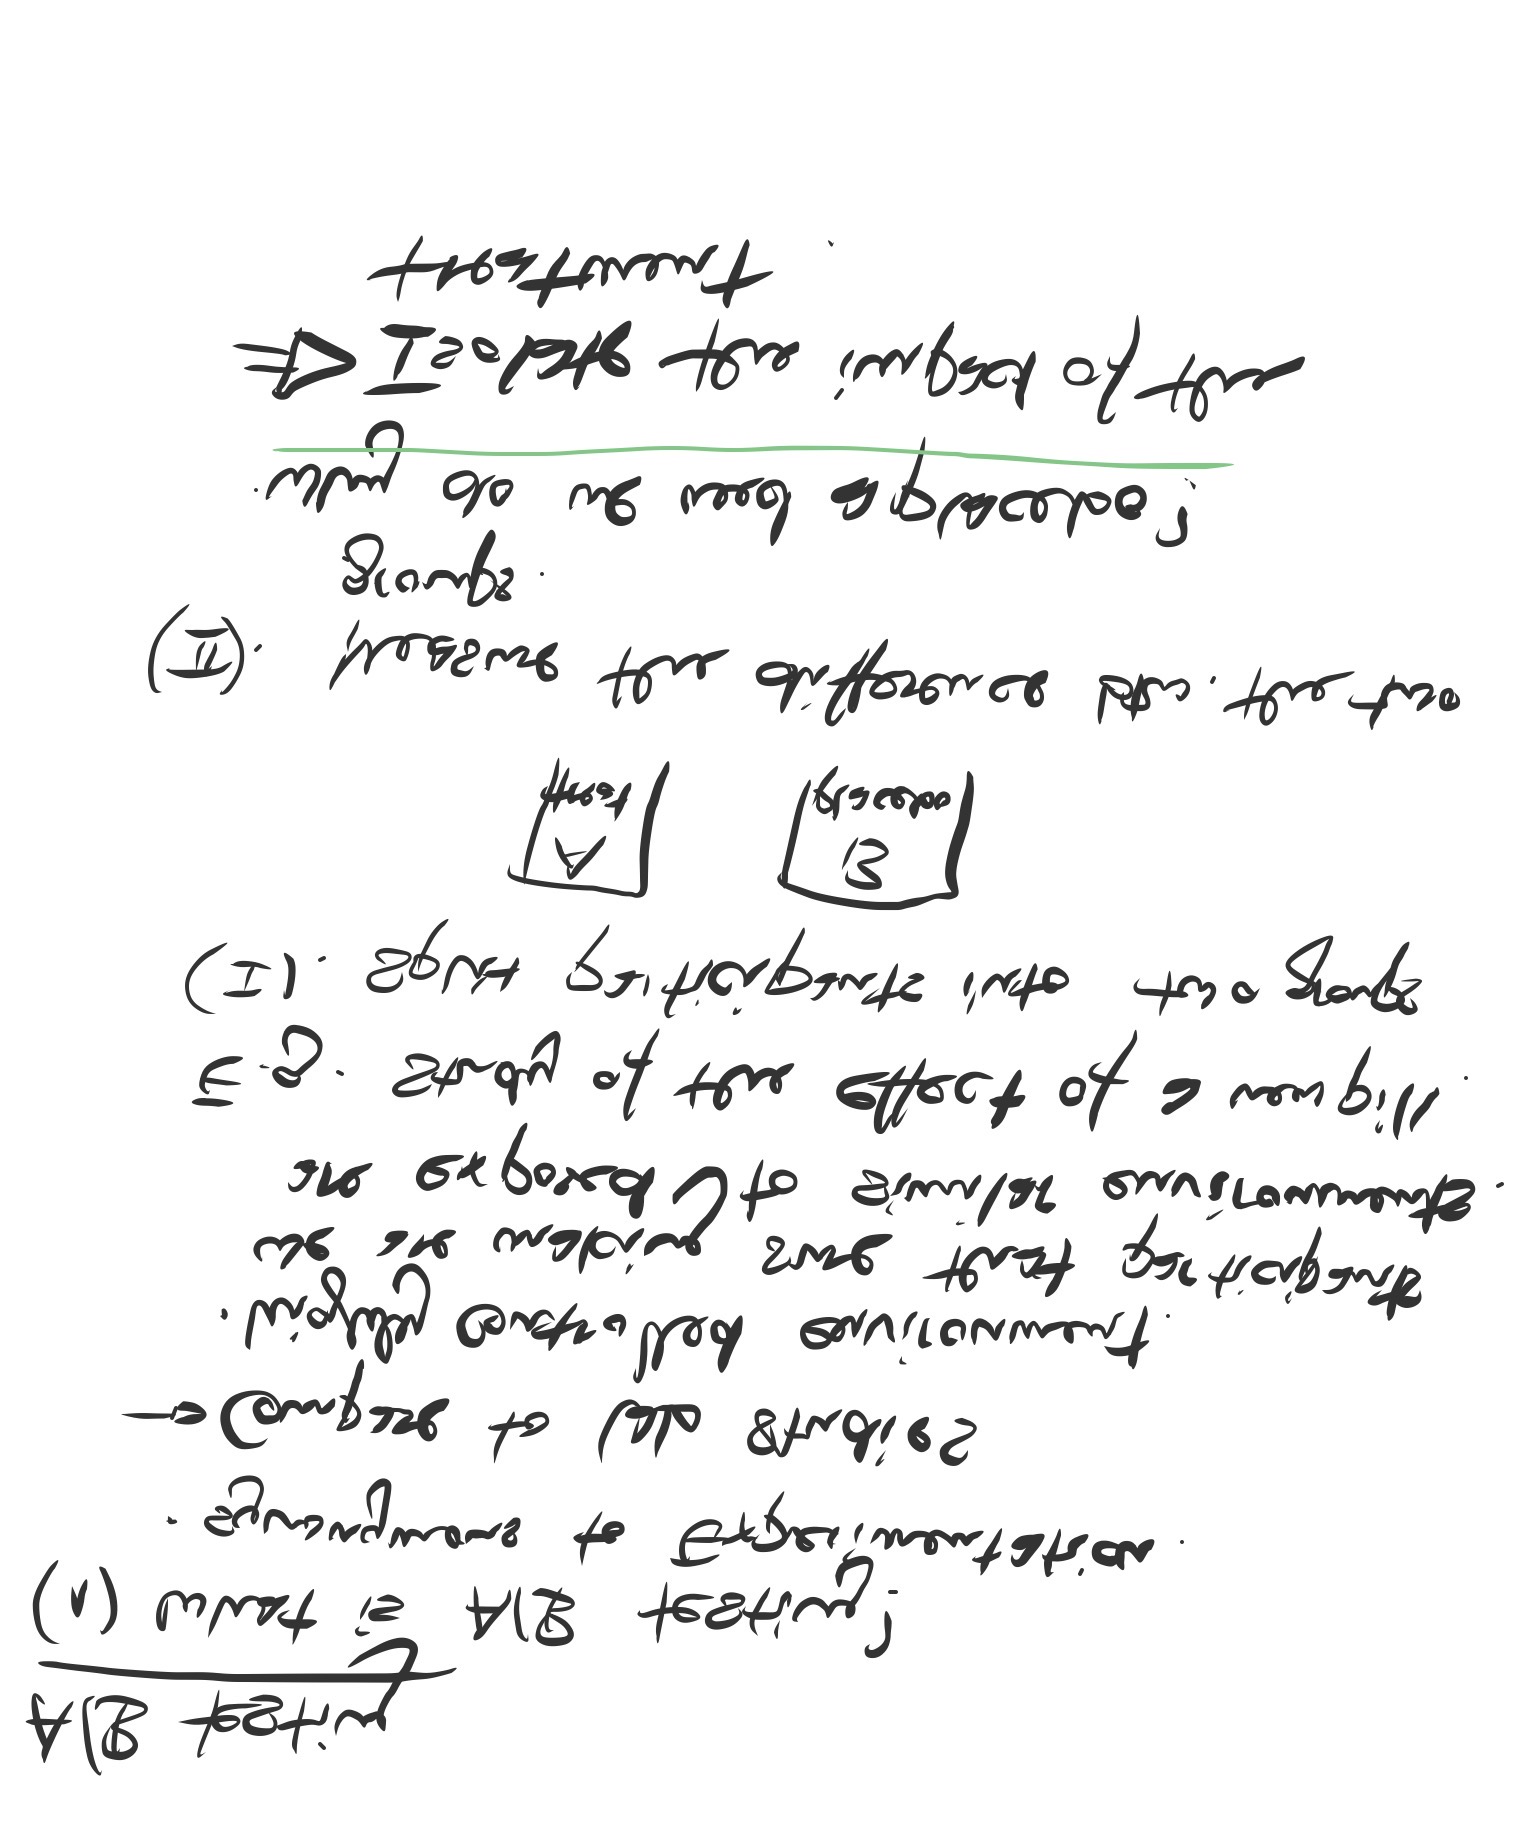 A/B testing
(1) What is A/B testing?
· synonymous to Experimentation.
→ Compare to lab studies
· highly controlled environment.
we are making sure that participants
are exposed to similar environments.
E.g. study of the effect of a new pill.
(I). Split participants into two groups
A B
treat placebo
(II). Measure the difference btw. the two
groups.
· Why do we need a placebo?
⇒ Isolate the impact of the
treatment.